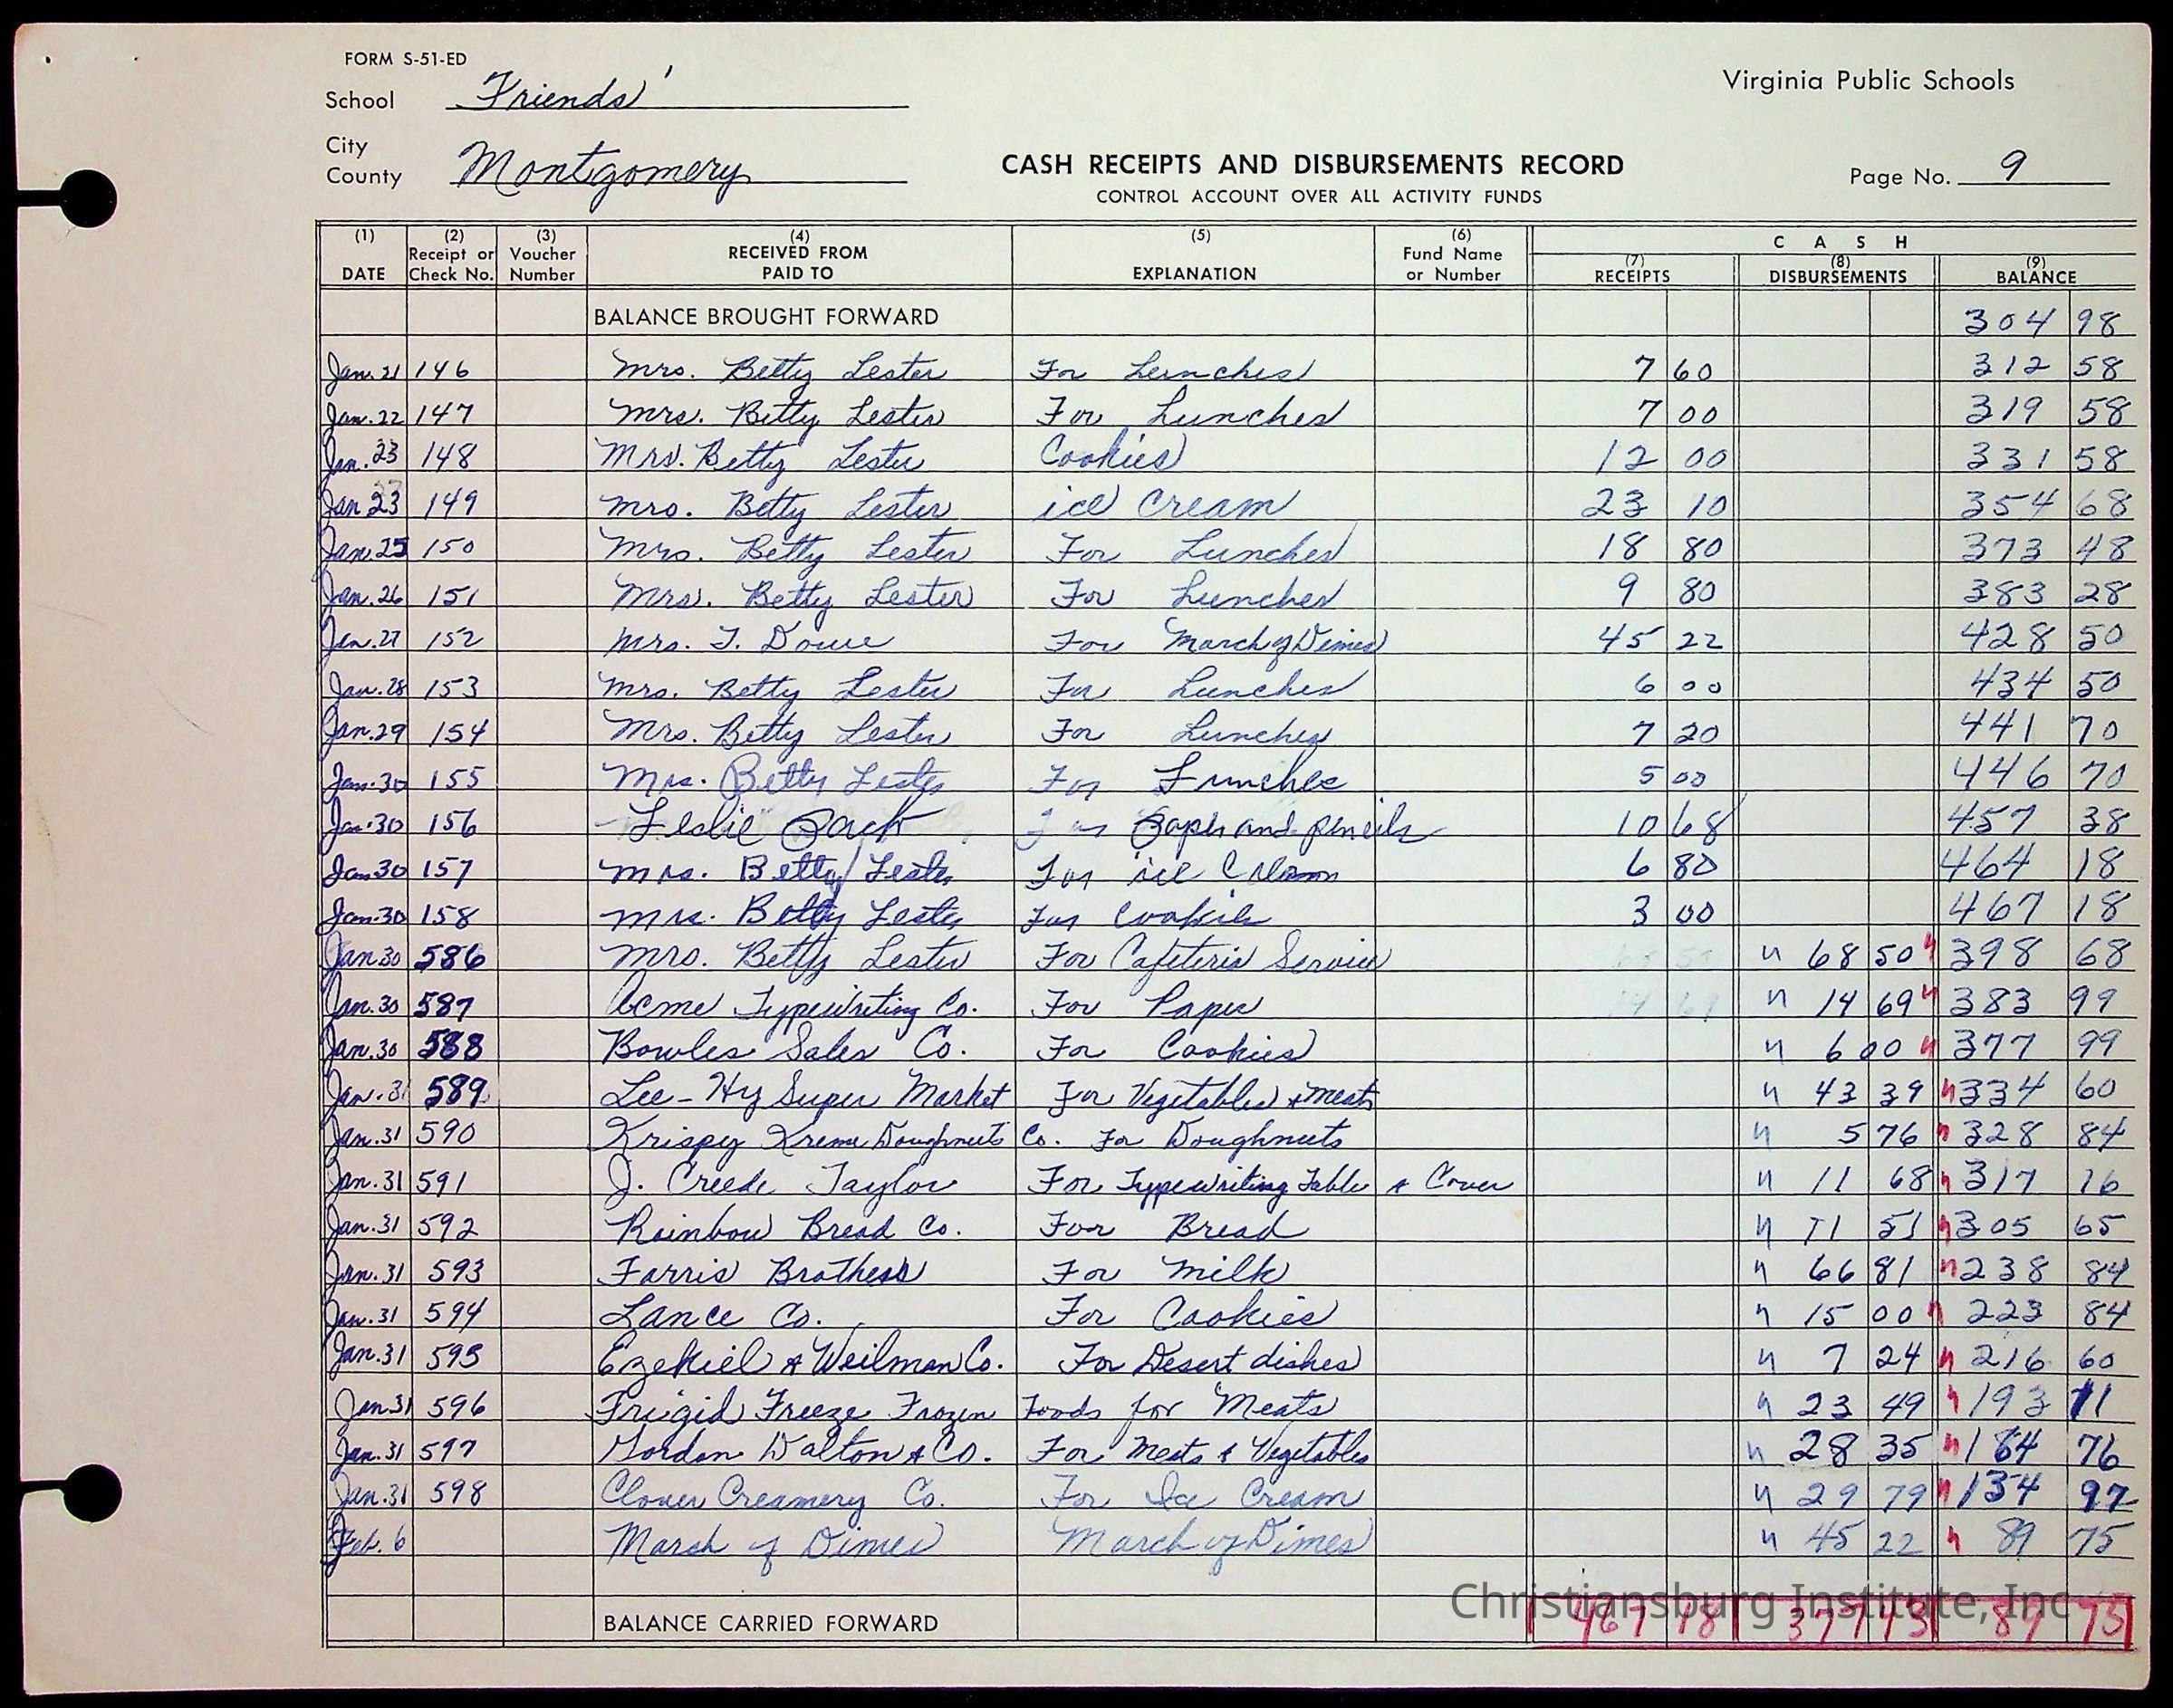 FORM S-51-ED
School Friends'
Virginia Public Schools
City
County Montgomery
CASH RECEIPTS AND DISBURSEMENTS RECORD
CONTROL ACCOUNT OVER ALL ACTIVITY FUNDS
Page No. 9
(1) DATE (2) Receipt or Check No. (3) Voucher Number (4) RECEIVED FROM PAID TO (5) EXPLANATION (6) Fund Name or Number CASH (7) RECEIPTS (8) DISBURSEMENTS (9) BALANCE
BALANCE BROUGHT FORWARD 304 98
Jan. 21 146 Mrs. Betty Lester For Lunches 7 60 312 58
Jan. 22 147 Mrs. Betty Lester For Lunches 7 00 319 58
Jan. 23 148 Mrs. Betty Lester Cookies 12 00 331 58
Jan 23 149 Mrs. Betty Lester ice Cream 23 10 354 68
Jan. 25 150 Mrs. Betty Lester For Lunches 18 80 373 48
Jan. 26 151 Mrs. Betty Lester For Lunches 9 80 383 28
Jan. 27 152 Mrs. T. Dowe For March of Dimes 45 22 428 50
Jan. 28 153 Mrs. Betty Lester For Lunches 6 00 434 50
Jan. 29 154 Mrs. Betty Lester For Lunches 7 20 441 70
Jan. 30 155 Mrs. Betty Lester For Lunches 5 00 446 70
Jan. 30 156 Leslie Pack For Paper and pencils 10 68 457 38
Jan 30 157 Mrs. Betty Lester For ice Cream 6 80 464 18
Jan. 30 158 Mrs. Betty Lester For Cookies 3 00 467 18
Jan 30 586 Mrs. Betty Lester For Cafeteria Service " 68 50 " 398 68
Jan. 30 587 Acme Typewriting Co. For Paper " 14 69 " 383 99
Jan. 30 588 Bowles Sales Co. For Cookies " 6 00 " 377 99
Jan. 31 589 Lee-Hy Super Market For Vegetables & Meats " 43 39 " 334 60
Jan. 31 590 Krispy Kreme Doughnuts Co. For Doughnuts " 5 76 " 328 84
Jan. 31 591 J. Creede Taylor For Typewriting Table & Cover " 11 68 " 317 16
Jan. 31 592 Rainbow Bread Co. For Bread " 11 51 " 305 65
Jan. 31 593 Farris Brothers For Milk " 66 81 " 238 84
Jan. 31 594 Lance Co. For Cookies " 15 00 " 223 84
Jan. 31 595 Ezekiel & Weilman Co. For Desert dishes " 7 24 " 216 60
Jan 31 596 Frigid Freeze Frozen Foods for Meats " 23 49 " 193 11
Jan. 31 597 Gordon Walton & Co. For Meats & Vegetables " 28 35 " 164 76
Jan. 31 598 Clover Creamery Co. For Ice Cream " 29 79 " 134 97
Feb. 6 March of Dimes March of Dimes " 45 22 " 89 75
BALANCE CARRIED FORWARD 467 18 377 43 89 75
Christiansburg Institute, Inc